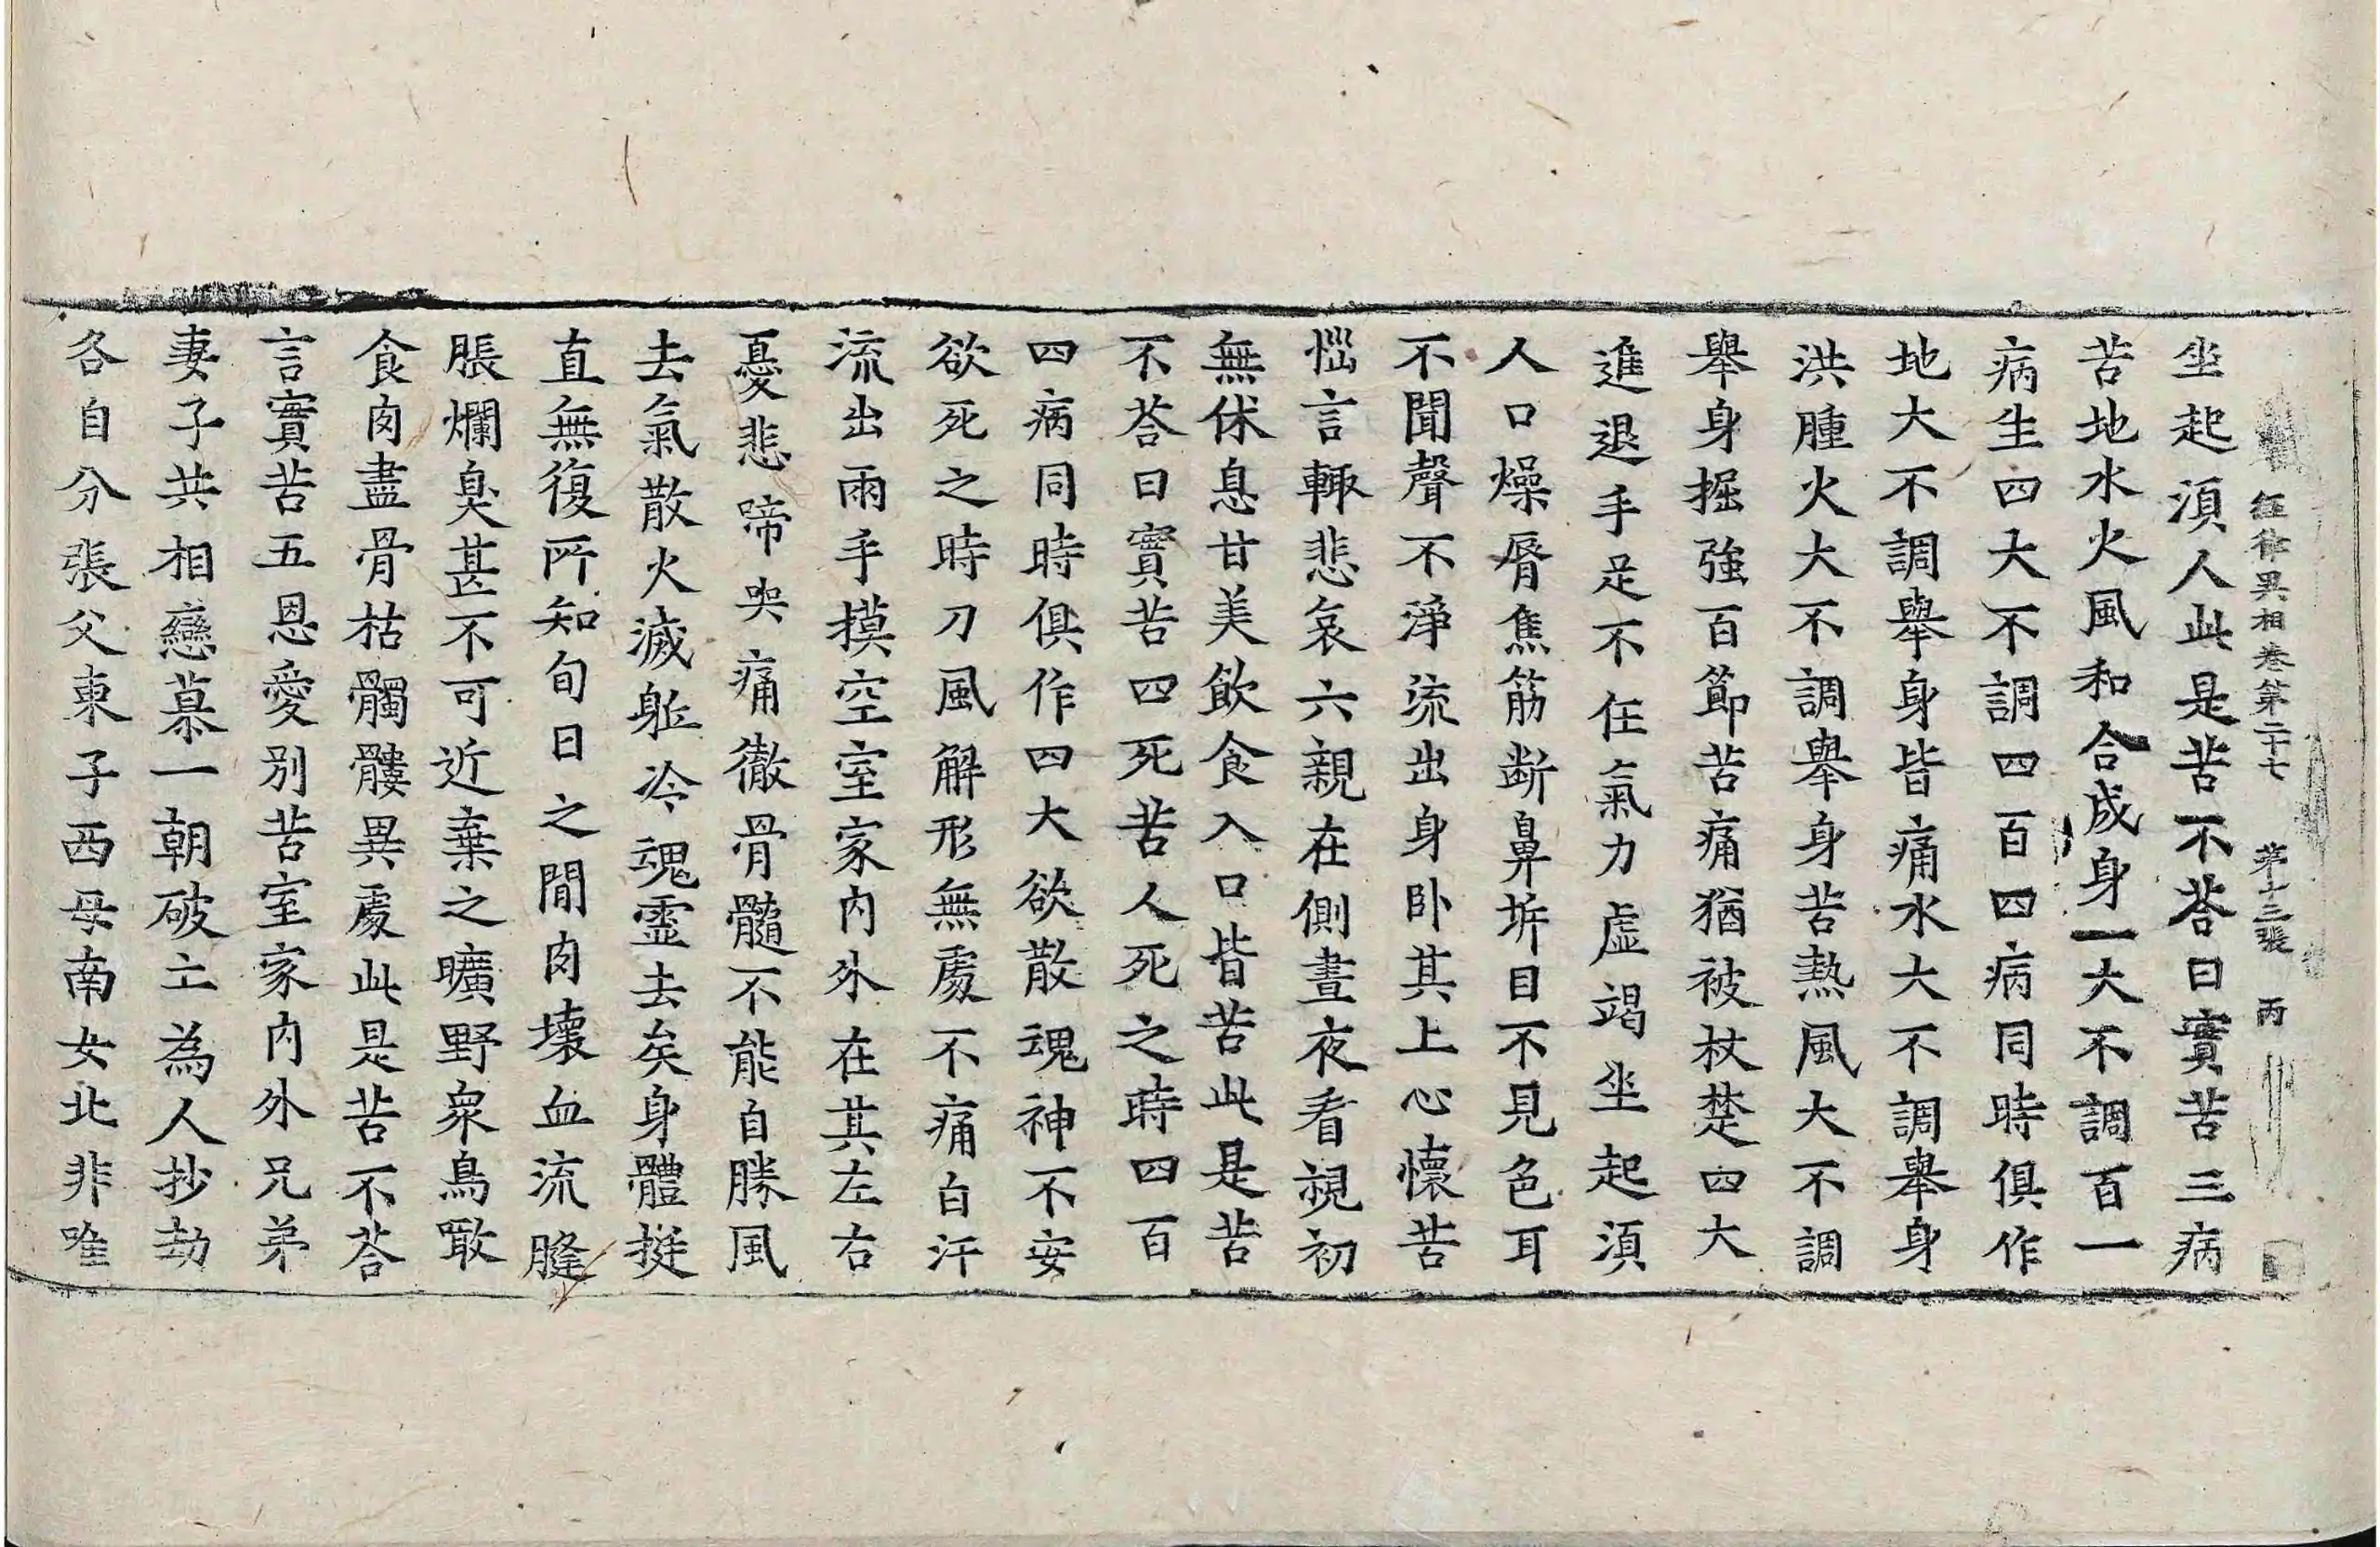 經律異相卷第二十七 第十三張 丙
坐起湏人此是苦不荅曰實苦三病
苦地水火風和合成身一大不調百一
病生四大不調四百四病同時俱作
地大不調舉身皆痛水大不調舉身
洪腫火大不調舉身苦熱風大不調
舉身掘強百節苦痛猶被杖楚四大
進退手足不任氣力虛竭坐起湏
人口燥脣焦筋断鼻坼目不見色耳
不聞聲不淨流出身卧其上心懷苦
惱言輙悲哀六親在側晝夜看視初
無休息甘美飲食入口皆苦此是苦
不荅曰實苦四死苦人死之時四百
四病同時俱作四大欲散魂神不安
欲死之時刀風解形無處不痛白汗
流出兩手摸空室家內外在其左右
憂悲啼哭痛徹骨髓不能自勝風
去氣散火滅躰冷魂靈去矣身體挺
直無復所知旬日之閒肉壞血流膖
脹爛臭甚不可近棄之曠野衆鳥噉
食肉盡骨枯髑髏異處此是苦不荅
言實苦五恩愛別苦室家內外兄弟
妻子共相戀慕一朝破亡為人抄劫
各自分張父東子西母南女北非唯